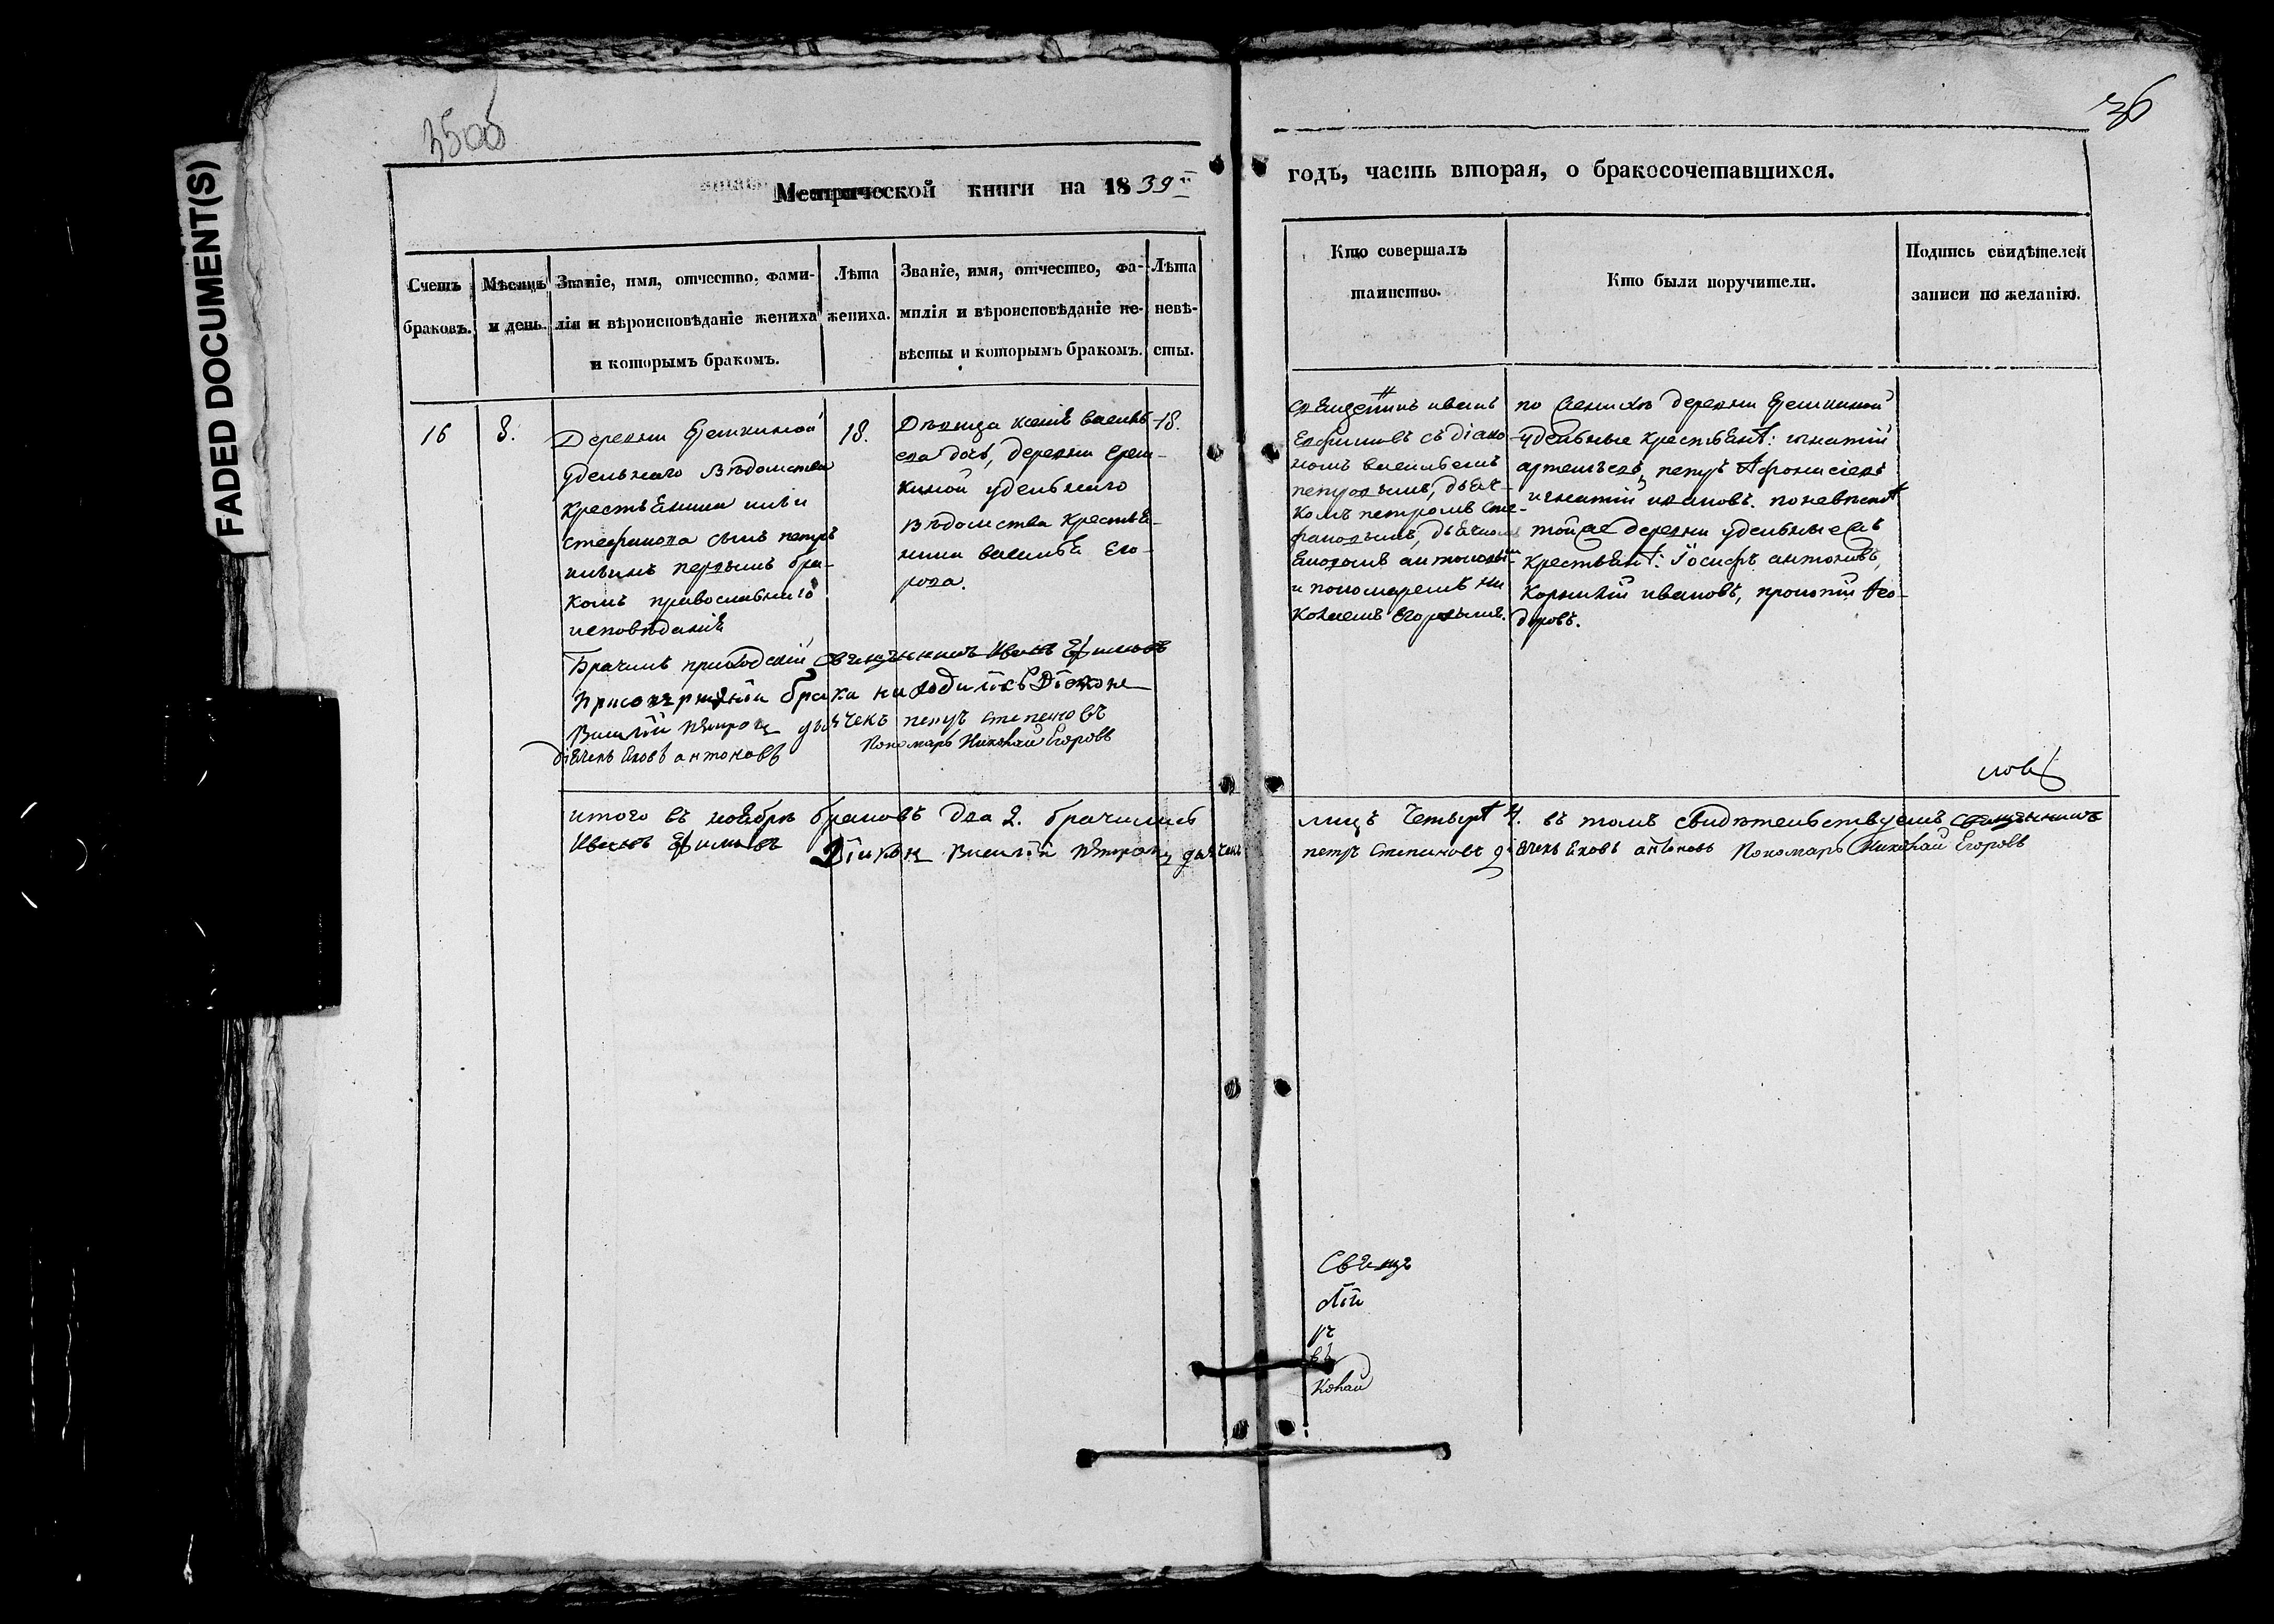 FADED DOCUMENT(S)
36
Метрической книги на 1839й
годъ, часть вторая, о бракосочетавшихся.
Счетъ браковъ.
Мѣсяцъ и день.
Званіе, имя, отчество, фами-
лія и вѣроисповѣданіе жениха
и которымъ бракомъ.
Лѣта
жениха.
Званіе, имя, отчество, фа-
милія и вѣроисповѣданіе не-
вѣсты и которымъ бракомъ.
Лѣта
невѣ-
сты.
Кто совершалъ
таинство.
Кто были поручители.
Подпись свидѣтелей
записи по желанію.
16
8.
Деревни
удельнаго вѣдомства
крестьянина
стефанова сынъ петръ
первымъ бра-
комъ православнаго
исповѣданія
18.
Дѣвица ксенія василь-
ева дочь, деревни
киной удельнаго
вѣдомства крестья-
нина василья его-
рова.
18.
священникъ иванъ
ефимовъ съ діако-
номъ васильемъ
петровымъ, дьяч-
комъ петромъ сте-
фановымъ, дьячкомъ
яковомъ антоновымъ
и пономаремъ ни-
колаемъ егоровымъ.
по женихѣ деревни
удельные крестьяне: игнатій
артемьевъ, петръ афонасіевъ
игнатій ивановъ. по невѣстѣ
той же деревни удельные
крестьяне: іосифъ антоновъ,
ивановъ,
доровъ.
приходскій священникъ Иванъ Ефимовъ
брака находились Діаконъ
Василій Петровъ дьячекъ петръ степановъ
дьячекъ яковъ антоновъ Пономарь Николай Егоровъ
лов
итого въ ноябрѣ браковъ два 2. брачились
лицъ четыре 4. въ томъ свидѣтельствуемъ священникъ
Иванъ Ефимовъ Діаконъ Василій Петровъ дьячекъ
петръ степановъ дьячекъ яковъ антоновъ Пономарь Николай Егоровъ
Свящ
лій
въ
колай